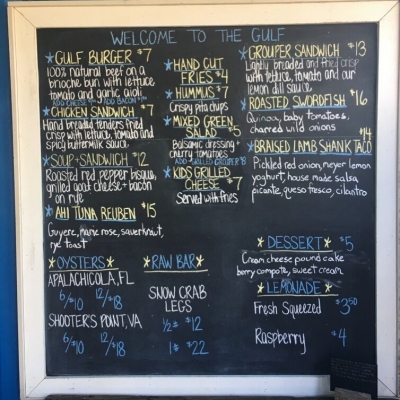 WELCOME TO THE GULF
GULF BURGER $7
100% natural beef on a
brioche bun with lettuce
tomato and garlic aioli
ADD CHEESE ADD BACON
CHICKEN SANDWICH $7
Hand breaded tenders fried
crisp with lettuce, tomato and
spicy buttermilk sauce
SOUP + SANDWICH $12
Roasted red pepper bisque,
grilled goat cheese + bacon
on rye
AHI TUNA REUBEN $15
Guyere, marie rose, sauerkraut,
rye toast
HAND CUT
FRIES $4
HUMMUS $7
Crispy pita chips
MIXED GREEN
SALAD $5
Balsamic dressing +
cherry tomatoes
ADD GRILLED GROUPER $8
KIDS GRILLED
CHEESE $7
Served with fries
GROUPER SANDWICH $13
Lightly breaded and fried crisp
with lettuce, tomato and our
lemon dill sauce
ROASTED SWORDFISH $16
Quinoa, baby tomatoes,
charred wild onions
$14
BRAISED LAMB SHANK TACO
Pickled red onion, meyer lemon
yoghurt, house made salsa
picante, queso fresco, cilantro
OYSTERS
APALACHICOLA, FL
6/$10 12/$18
SHOOTER'S POINT, VA
6/$10 12/$18
RAW BAR
SNOW CRAB
LEGS
1/2# $12
1# $22
DESSERT $5
Cream cheese pound cake
berry compote, sweet cream
LEMONADE
Fresh Squeezed $3.50
Raspberry $4